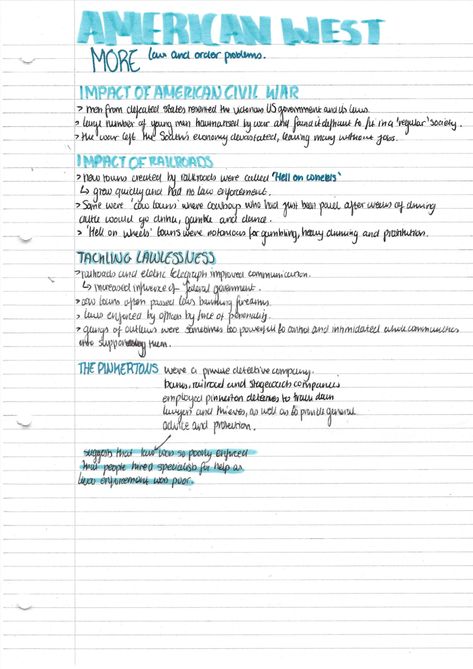 AMERICAN WEST
MORE law and order problems.
IMPACT OF AMERICAN CIVIL WAR
> men from defeated states resented the victorian US government and its laws.
> large number of young men traumatised by war and found it difficult to fit in a 'regular' society.
> the war left the South's economy devastated, leaving many without jobs.
IMPACT OF RAILROADS
> new towns created by railroads were called 'Hell on wheels'
↳ grew quickly and had no law enforcement.
> Some were 'cow towns' where cowboys who had just been paid after weeks of driving
cattle would go drink, gamble and dance.
> 'Hell on wheels' towns were notorious for gambling, heavy drinking and prostitution.
TACKLING LAWLESSNESS
> railroads and eletric telegraph improved communication.
↳ increased influence of federal government.
> cow towns often passed laws banning firearms.
> laws enforced by officers by fines or
> gangs of outlaws were sometimes too powerful to control and intimidated whole communities
into supporting them.
THE PINKERTONS were a private detective company.
banks, railroad and stagecoach companies
employed pinkerton to track down
and thieves, as well as to provide general
advice and protection.
suggests that law was so poorly enforced
that people hired specialists for help as
law enforcement was poor.